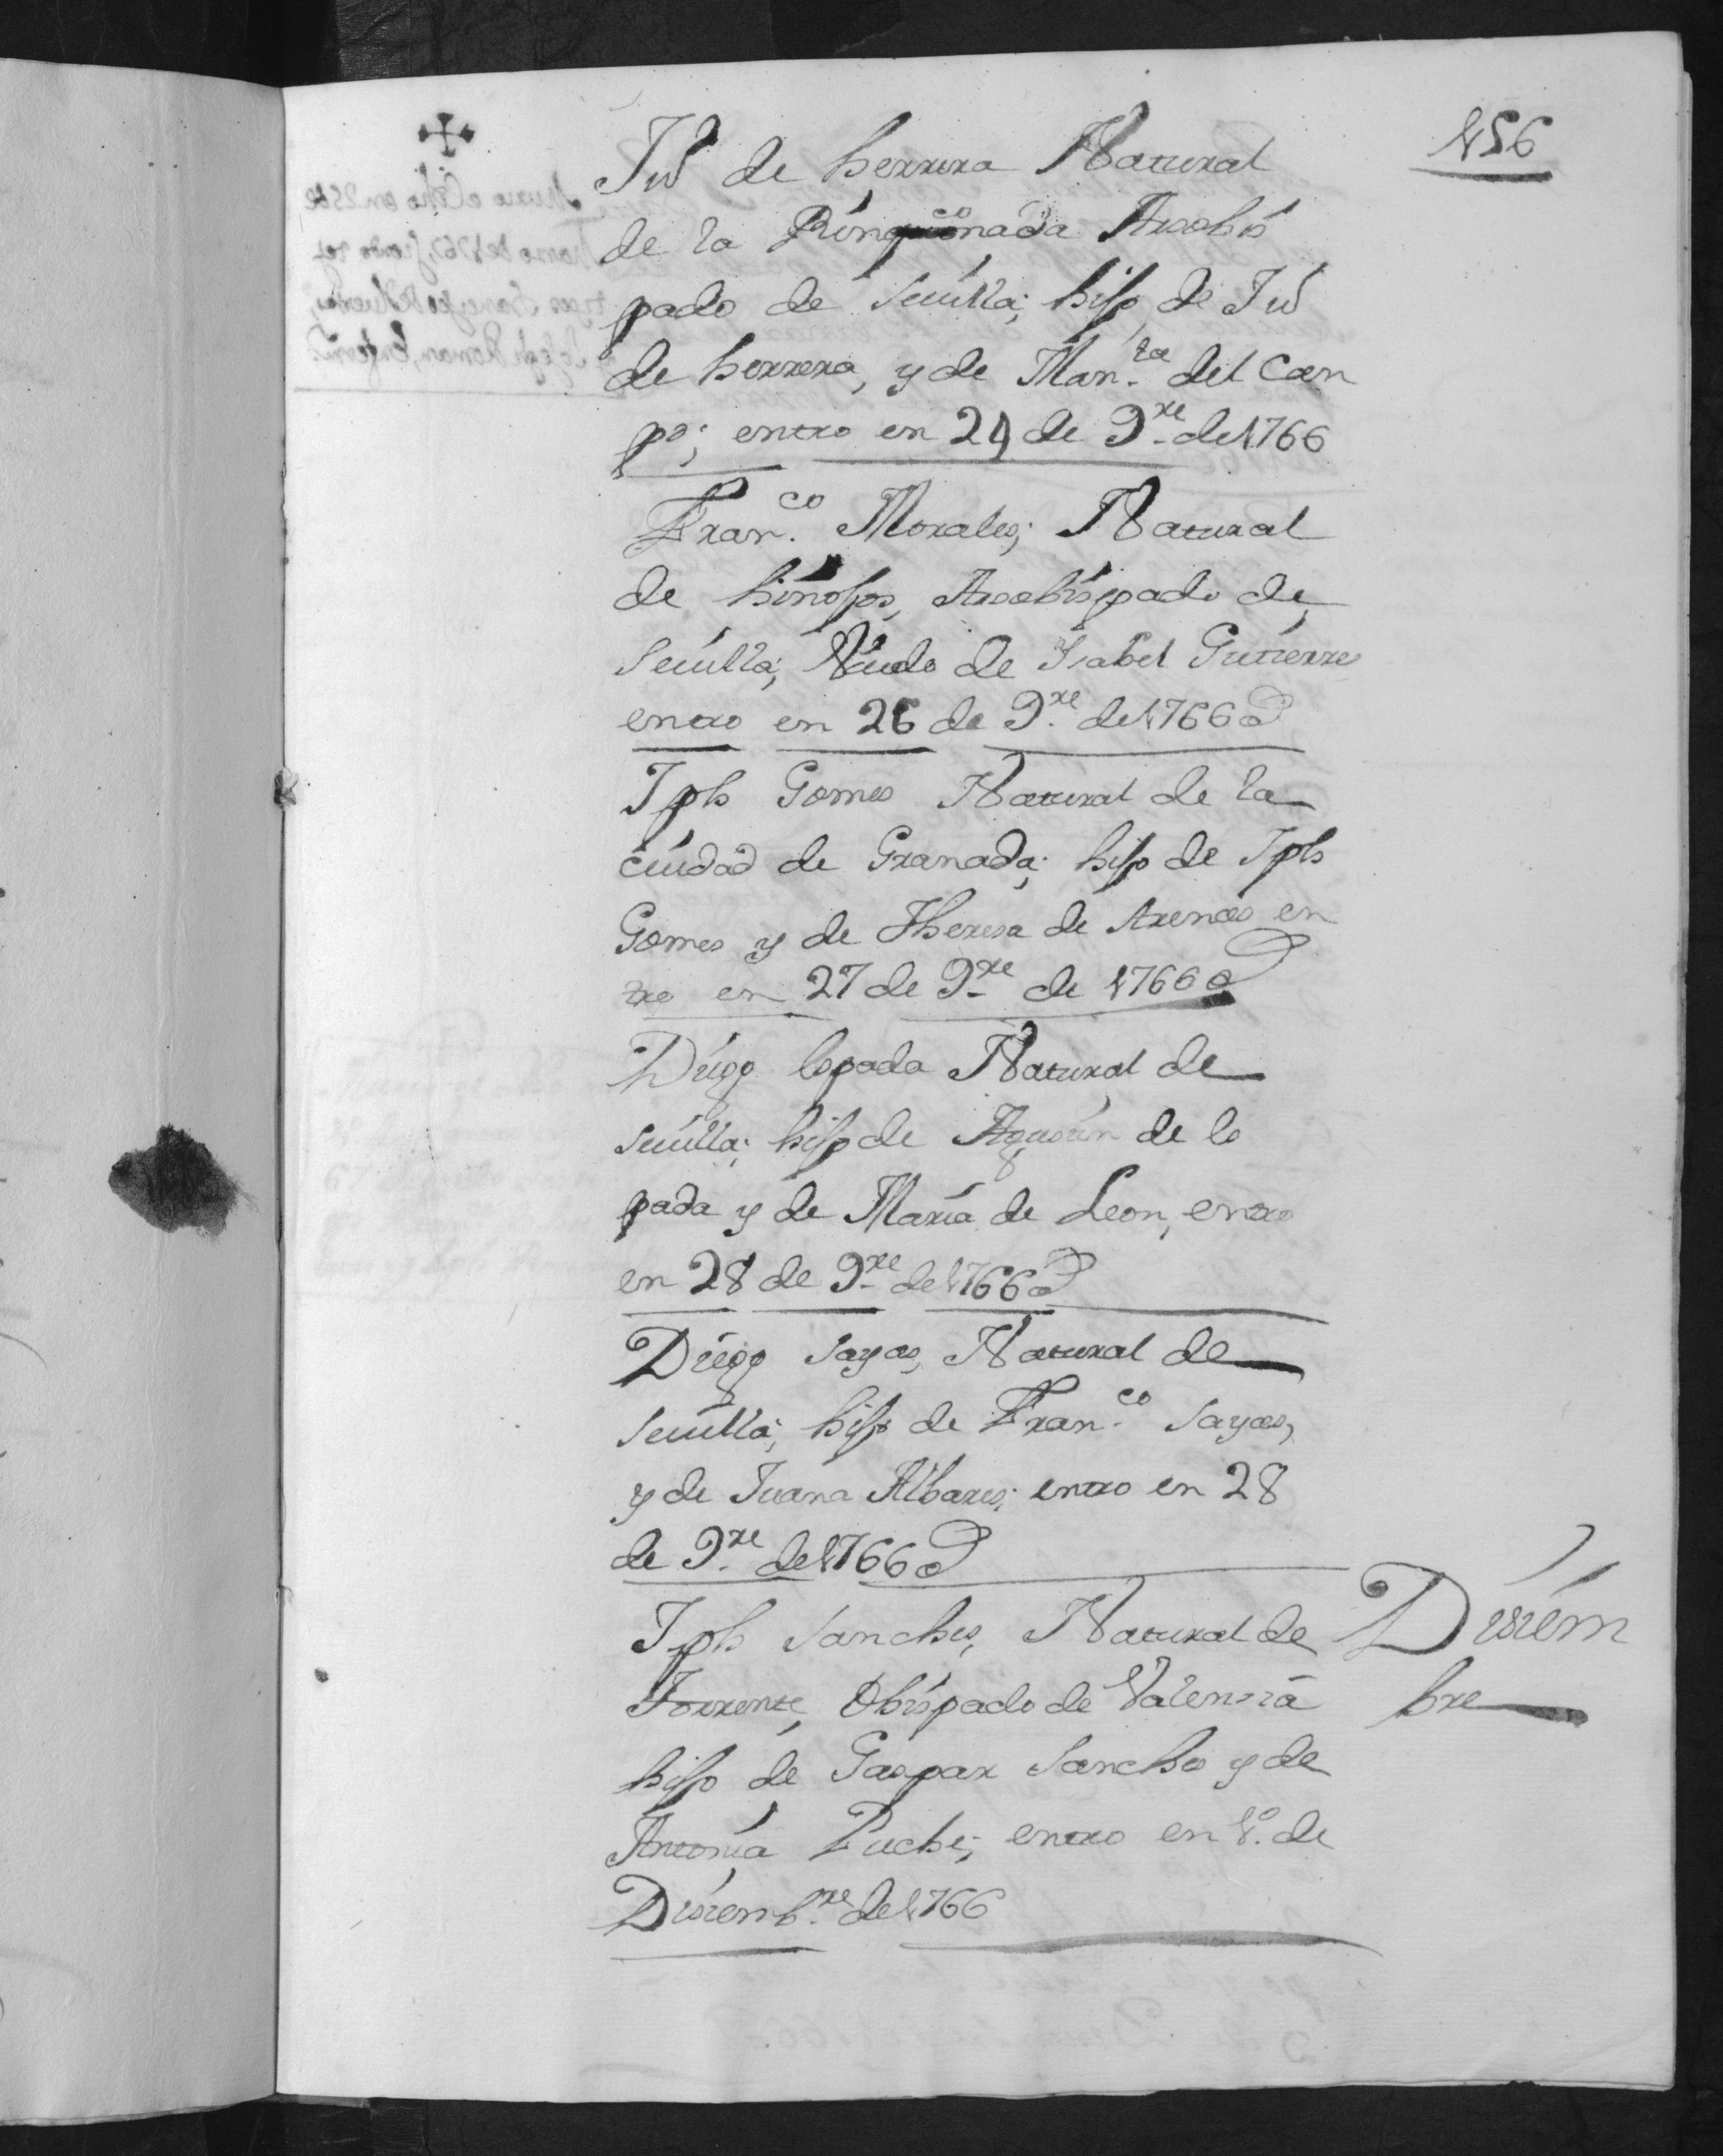 156
Ju.º de herrera Natural
de la Rinqconada Arsobis
pado de Seuilla; hijo de Ju.º
de herrera, y de Man.la del Can
po; entro en 24 de 9.re de 1766
Fran.co Morales; Natural
de hinojos, Arsobispado de
Seuilla; Viudo de Ysabel Gutierres
entro en 26 de 9.re de 1766
Jph Gomes Natural de la
ciudad de Granada; hijo de Jph
Gomes y de Theresa de Arenas en
tro en 27 de 9.re de 1766
Diego lopada Natural de
Seuilla; hijo de Agustin de lo
pada y de Maria de Leon, entro
en 28 de 9.re de 1766
Diego Sayas, Natural de
Seuilla; hijo de Fran.co Sayas,
y de Juana Albares; entro en 28
de 9.re de 1766
Jph Sanches, Natural de
Torrente, Obispado de Valensia
hijo de Gaspar Sanches y de
Antonia Puche; entro en 1.º de
Disiemb.re de 1766
Disiem
bre